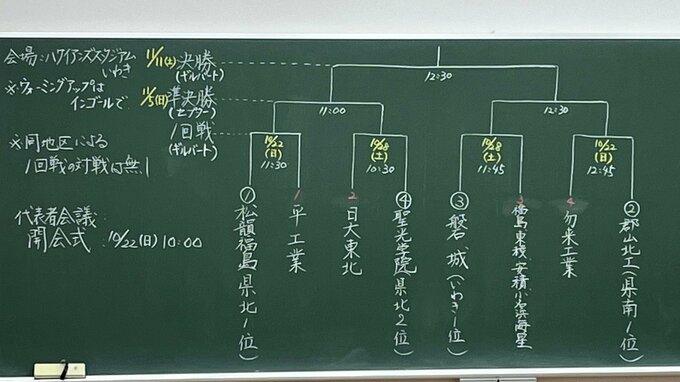 会場:ハワイアンズスタジアム
いわき
※ウォーミングアップは
インゴールで
※同地区による
1回戦の対戦は無し
代表者会議:
開会式:10/22(日)10:00
11/11(土)決勝
(ギルバート)
11/5(日)準決勝
(セプター)
1回戦
(ギルバート)
12:30
11:00
12:30
10/22
(日)
11:30
10/28
(土)
10:30
10/28
(土)
11:45
10/22
(日)
12:45
①松韻福島(県北1位)
1平工業
2日大東北
④聖光学院(県北2位)
③磐城(いわき1位)
3福島東稜・安積・小名浜海星
4勿来工業
②郡山北工(県南1位)